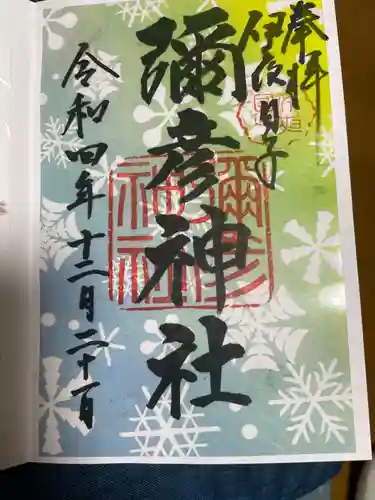 奉拝
伊夜日子
彌彦神社
令和四年十二月二十一日
彌彦
神社